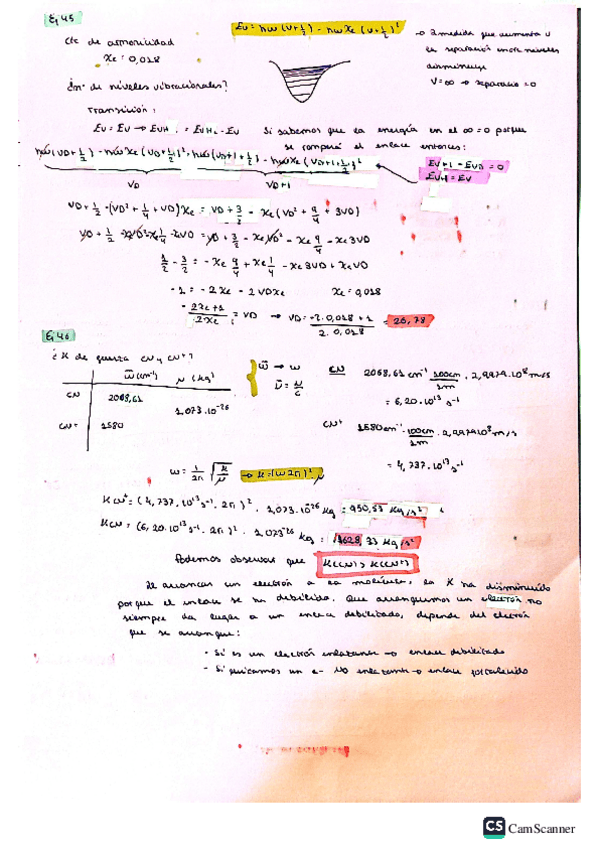 Ej 45
Ev = ħω (v+1/2) - ħωxe (v+1/2)²
cte de armonicidad
xe = 0,018
→ a medida que aumenta v
la separación entre niveles
disminuye
v = ∞ → separación = 0
¿nº de niveles vibracionales?
Transición:
Ev = Ev → Ev+1 = Ev+1 - Ev
Si sabemos que la energía en el ∞ = 0 porque
se romperá el enlace entonces:
Ev+1 - Ev = 0
Ev+1 = Ev
ħω(vD+1/2) - ħωxe (vD+1/2)² = ħω(vD+1+1/2) - ħωxe (vD+1+1/2)²
vD
vD+1
vD+1/2 - (vD²+1/4+vD)xe = vD+3/2 - xe(vD²+9/4+3vD)
1/2 - 3/2 = -xe 9/4 + xe 1/4 - xe3vD + xevD
-1 = -2xe - 2vDxe
xe = 0,018
= vD → vD = -2·0,018+1 / 2·0,018 = 26,78
Ej 46
¿K de fuerza CN y CN⁺?
ω̄(cm⁻¹) μ (kg)
CN 2068,61
1,073·10⁻²⁶
CN⁺ 1580
ω̄ → ω
CN 2068,61 cm⁻¹ 100cm/1m · 2,9979·10⁸ m/s
= 6,20·10¹³ s⁻¹
CN⁺ 1580cm⁻¹ · 100cm/1m · 2,9979·10⁸ m/s
= 4,737·10¹³ s⁻¹
ω = 1/2π √K/μ → K = (ω2π)² · μ
K CN⁺ = (4,737·10¹³ s⁻¹ · 2π)² · 1,073·10⁻²⁶ kg = 950,53 kg/s²
K CN = (6,20·10¹³ s⁻¹ · 2π)² · 1,073⁻²⁶ kg = 1628,33 kg/s²
Podemos observar que K(CN) > K(CN⁺)
Al arrancar un electrón a la molécula, la K ha disminuido
porque el enlace se ha debilitado. Que arranquemos un electrón no
siempre da lugar a un enlace debilitado, depende del electrón
que se arranque:
- Si es un electrón enlazante → enlace debilitado
- Si quitamos un e- No enlazante → enlace fortalecido
CS CamScanner